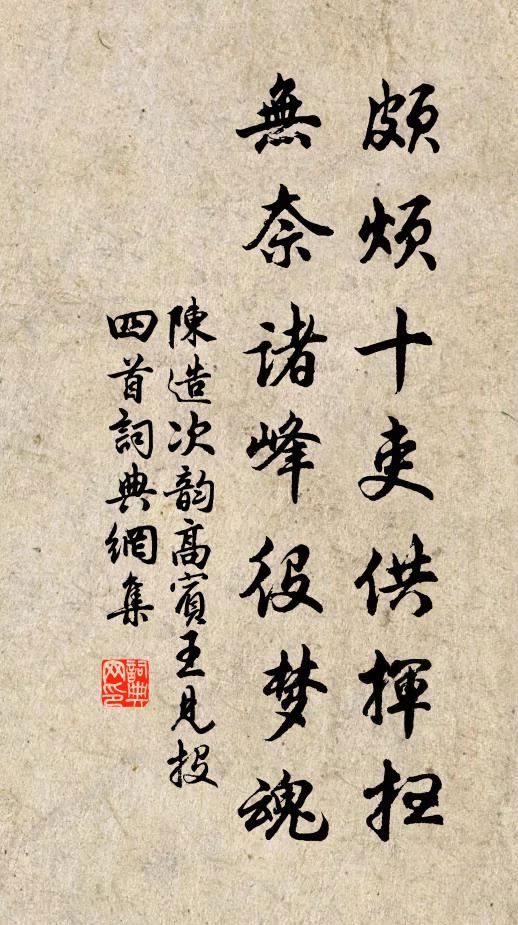 頗煩十吏供揮抂
無奈诸峰役梦魂
陳造次韵高賓王見投
四首詞典網集
詞典网印